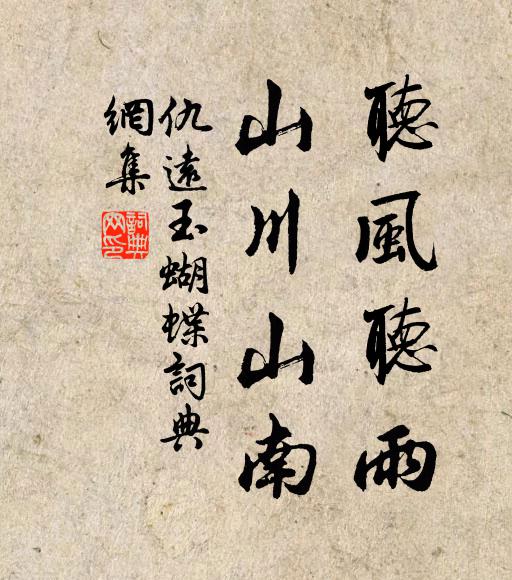 聽風聽雨
山川山南
仇遠玉蝴蝶詞典
網集
詞典
网印